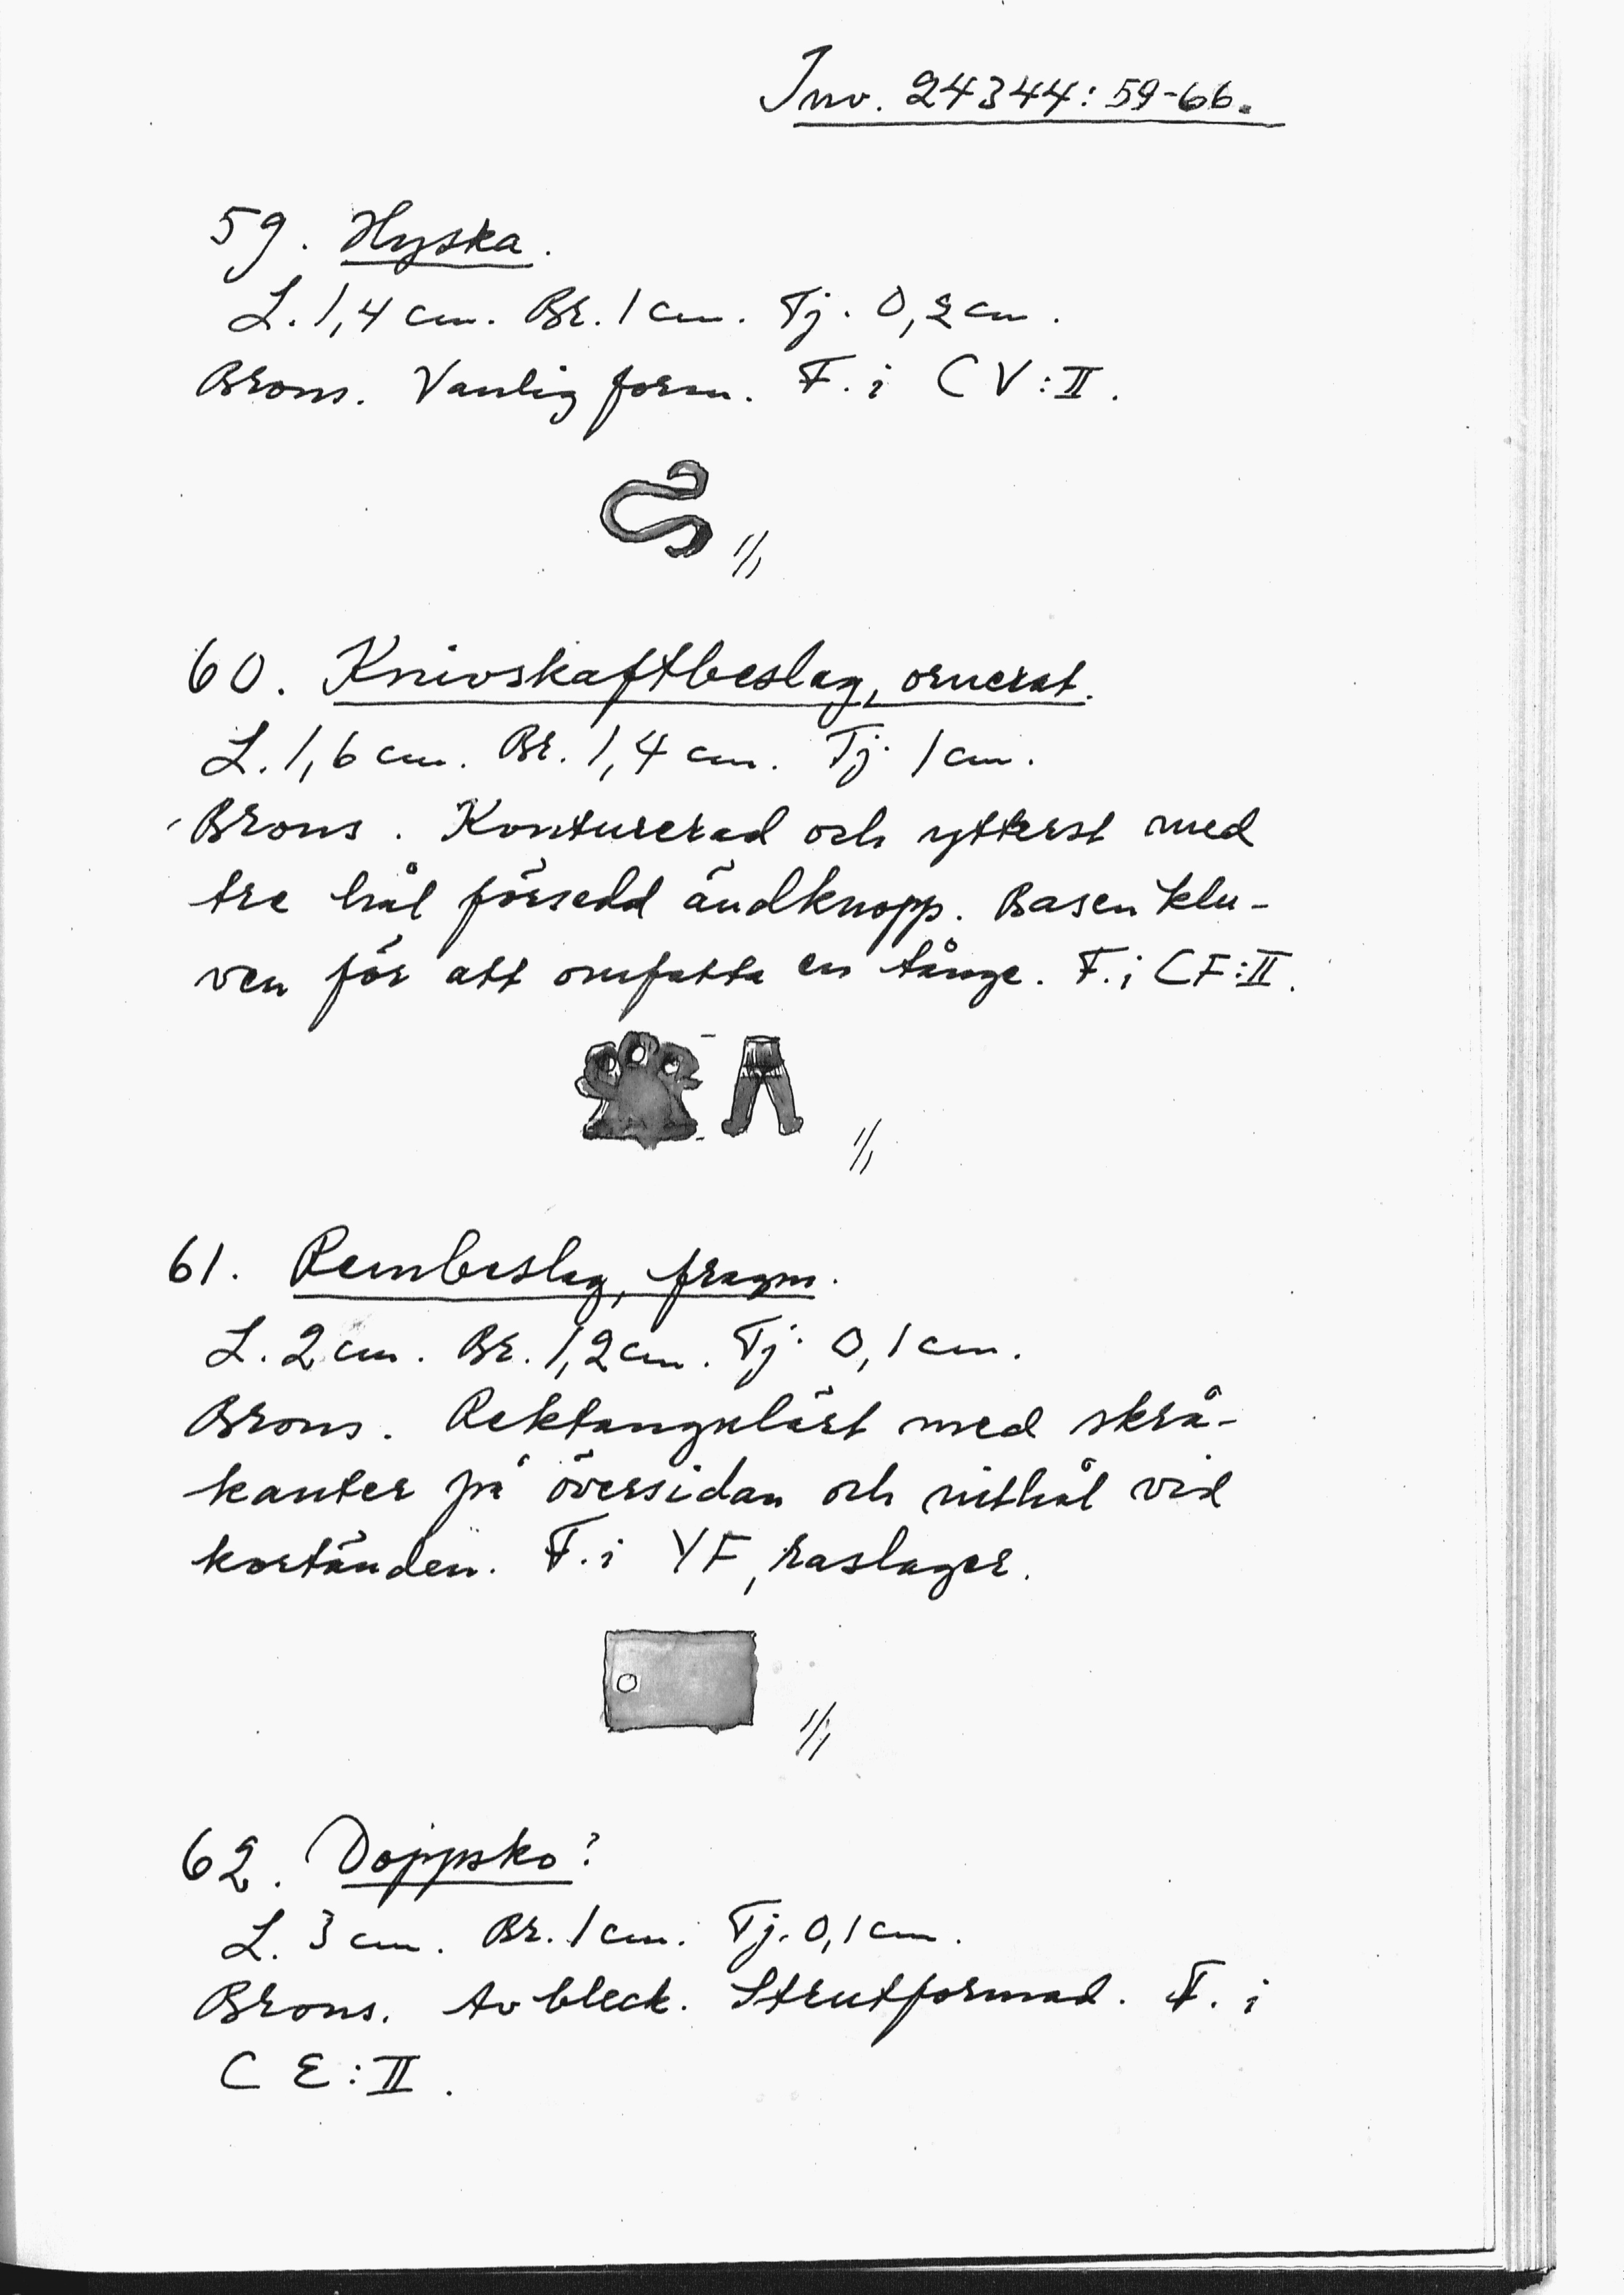 Inv. 24344: 59-66.
59. Hyska.
L. 1,4 cm. Br. 1 cm. Tj. 0,2 cm.
Brons. Vanlig form. F. i CV:II.
1/1
60. Knivskaftbeslag, ornerat.
L. 1,6 cm. Br. 1,4 cm. Tj. 1 cm.
Brons. Konturerad och ytterst med
tre hål försedd ändknopp. Basen klu-
ven för att omfatta en tånge. F. i CF:II.
1/1
61. Rembeslag, fragm.
L. 2 cm. Br. 1,2 cm. Tj. 0,1 cm.
Brons. Rektangulärt med skrå-
kanter på översidan och nithål vid
kortänden. F. i YF, raslager.
1/1
62. Doppsko?
L. 3 cm. Br. 1 cm. Tj. 0,1 cm.
Brons. Av bleck. Strutformad. F. i
CE:II.